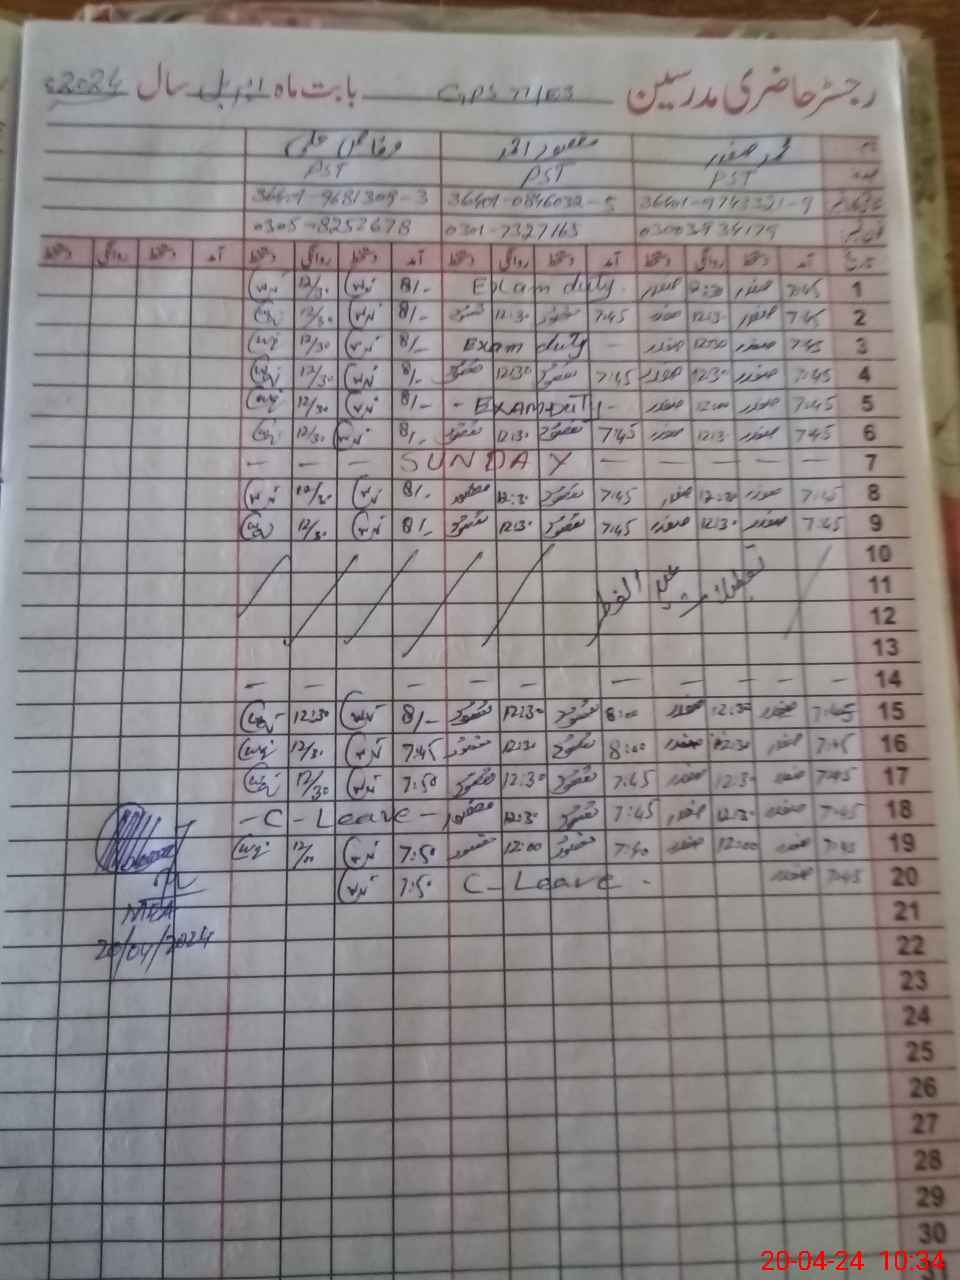 رجسٹر حاضری مدرسین GPS 71/EB بابت ماہ اپریل سال 2024ء
نام محمد صفدر مقصود احمد وقاص علی
عہدہ PST PST PST
36401-9743321-9 36401-0846032-5 36401-9681309-3
03003934179 0301-7327165 0305-8252678
تاریخ آمد دستخط روانگی دستخط آمد دستخط روانگی دستخط آمد دستخط روانگی دستخط آمد دستخط روانگی دستخط
1 7:45 صفدر 12:30 صفدر Exam duty. 8/- 12/30
2 7:45 صفدر 12:30 صفدر 7:45 مقصود 12:30 مقصود 8/- 12/30
3 7:45 صفدر 12:30 صفدر - Exam duty 8/- 12/30
4 7:45 صفدر 12:30 صفدر 7:45 مقصود 12:30 مقصود 8/- 12/30
5 7:45 صفدر 12:00 صفدر - EXAM DUTY - 8/- 12/30
6 7:45 صفدر 12:30 صفدر 7:45 مقصود 12:30 مقصود 8/- 12/30
7 — — — SUNDAY — — — — —
8 7:45 صفدر 12:30 صفدر 7:45 مقصود 12:30 مقصود 8/- 12/30
9 7:45 صفدر 12:30 صفدر 7:45 مقصود 12:30 مقصود 8/- 12/30
10
11 تعطیلات عید الفطر
12
13
14 — — — — — — — — — — —
15 7:45 صفدر 12:30 صفدر 8:00 مقصود 12:30 مقصود 8/- 12:30
16 7:45 صفدر 12:30 صفدر 8:00 مقصود 12:30 مقصود 7:45 12/30
17 7:45 صفدر 12:30 صفدر 7:45 مقصود 12:30 مقصود 7:50 12/30
18 7:45 صفدر 12:30 صفدر 7:45 مقصود 12:30 مقصود - C - Leave -
19 7:45 صفدر 12:00 صفدر 7:40 مقصود 12:00 مقصود 7:50 12/00
20 7:45 صفدر C - Leave - 7:50
21
MEA
22
20/04/2024
23
24
25
26
27
28
29
30
20-04-24 10:34